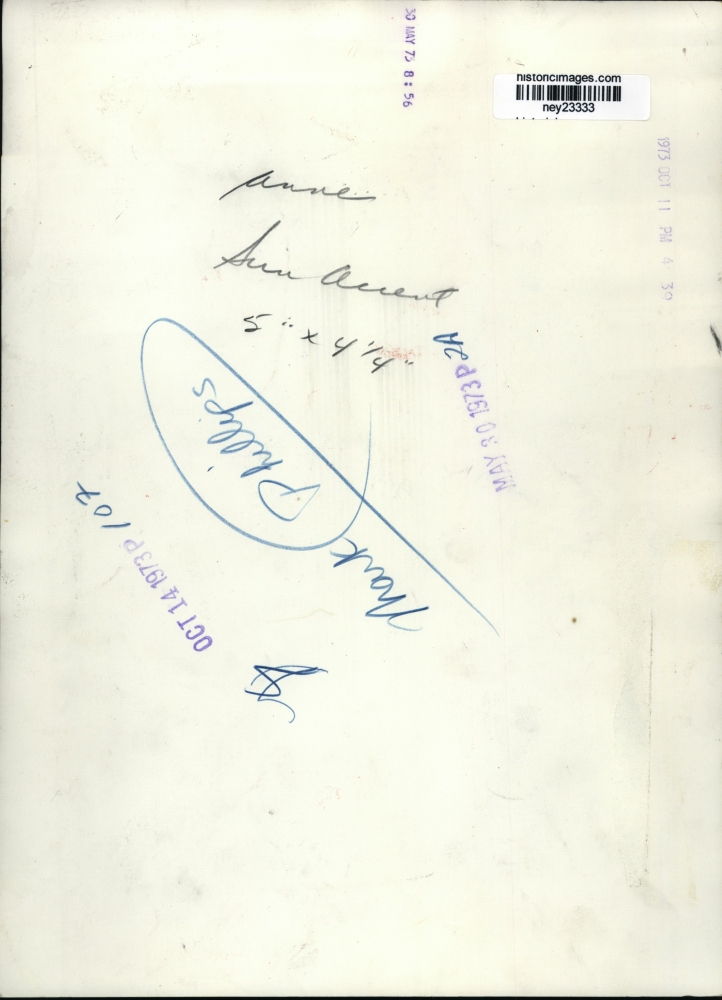 30 MAY 73 8:56
historicimages.com
ney23333
1973 OCT 11 PM 4 39
anne
Sun accent
5" x 4 1/4"
MAY 30 1973 P 2A
Mark Phillips
OCT 14 1973 P. 107